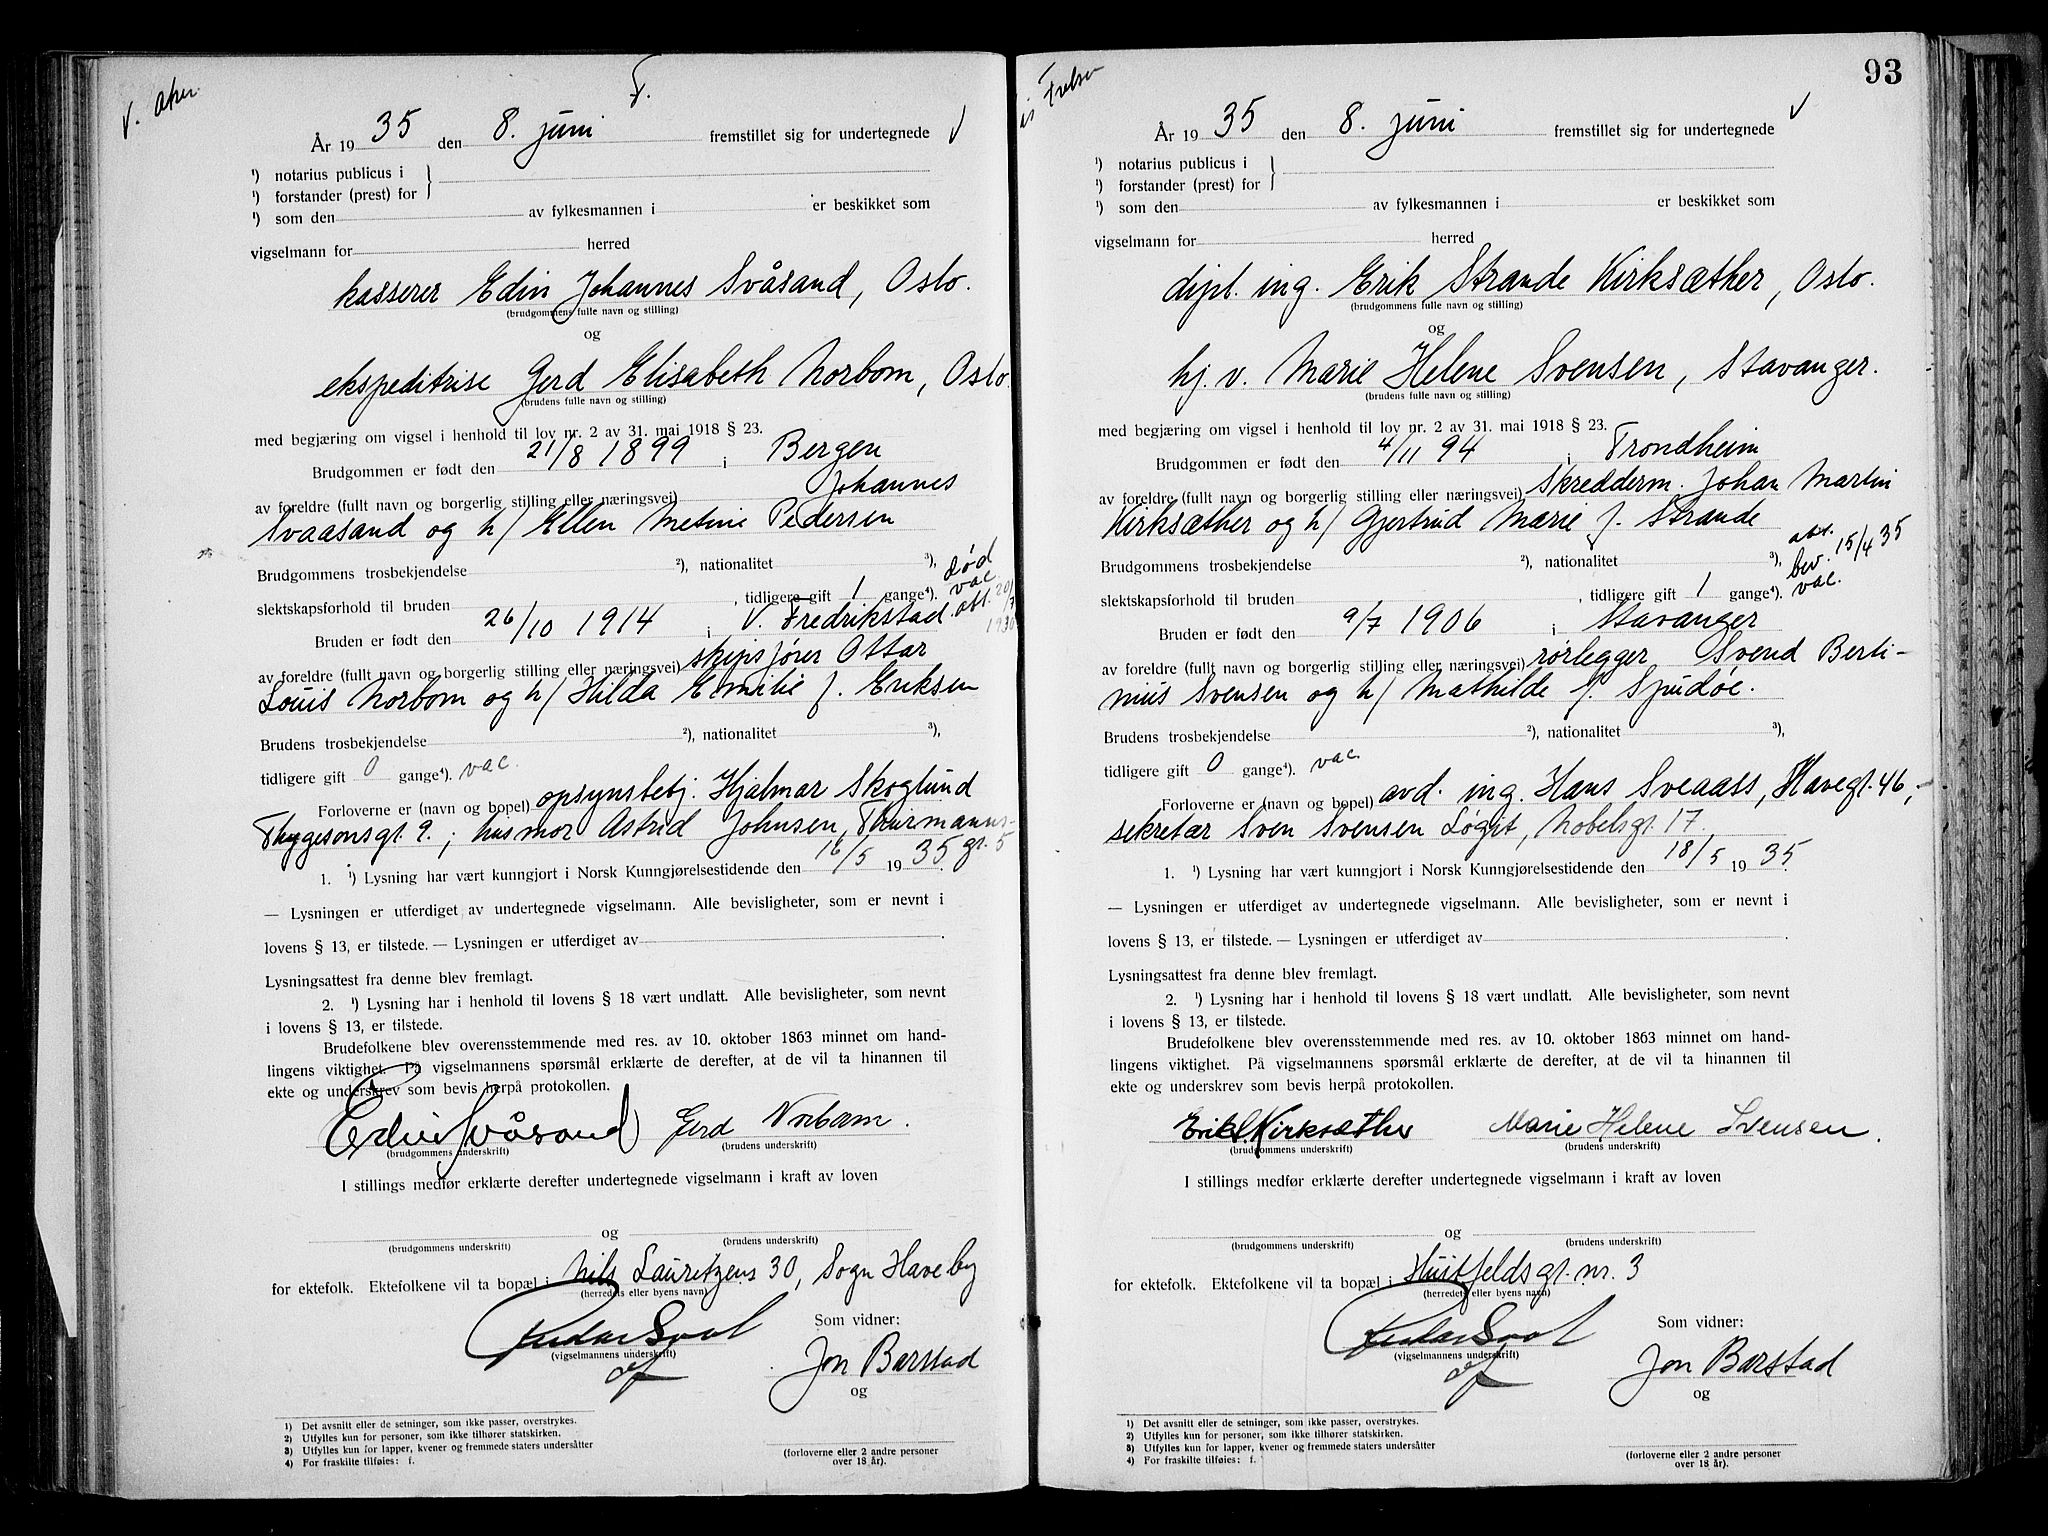 V. Aker.
F.
År 1935 den 8. juni fremstillet sig for undertegnede √
¹) notarius publicus i
¹) forstander (prest) for
¹) som den av fylkesmannen i er beskikket som
vigselmann for herred
kasserer Edin Johannes Svåsand, Oslo.
(brudgommens fulle navn og stilling)
og
ekspeditrise Gerd Elisabeth Norbom, Oslo.
(brudens fulle navn og stilling)
med begjæring om vigsel i henhold til lov nr. 2 av 31. mai 1918 § 23.
Brudgommen er født den 21/8 1899 i Bergen
av foreldre (fullt navn og borgerlig stilling eller næringsvei) Johannes
Svaasand og h/ Ellen Metine Pedersen
Brudgommens trosbekjendelse ²), nationalitet ³), død
slektskapsforhold til bruden , tidligere gift 1 gange⁴). vac
att. 20/7 1930
Bruden er født den 26/10 1914 i V. Fredrikstad
av foreldre (fullt navn og borgerlig stilling eller næringsvei) skipsfører Ottar
Louis Norbom og h/ Hilda Emilie f. Eriksen
Brudens trosbekjendelse ²), nationalitet ³),
tidligere gift 0 gange⁴). vac.
Forloverne er (navn og bopel) opsynsbetj. Hjalmar Skoglund
Thygesonsgt. 9. ; husmor Astrid Johnsen, Thurmanns-
gt. 5
1. ¹) Lysning har vært kunngjort i Norsk Kunngjørelsestidende den 16/5 1935.
— Lysningen er utferdiget av undertegnede vigselmann. Alle bevisligheter, som er nevnt i
lovens § 13, er tilstede. — Lysningen er utferdiget av .
Lysningsattest fra denne blev fremlagt.
2. ¹) Lysning har i henhold til lovens § 18 vært undlatt. Alle bevisligheter, som nevnt
i lovens § 13, er tilstede.
Brudefolkene blev overensstemmende med res. av 10. oktober 1863 minnet om hand-
lingens viktighet. På vigselmannens spørsmål erklærte de derefter, at de vil ta hinannen til
ekte og underskrev som bevis herpå protokollen.
Edin Svåsand Gerd Norbom.
(brudgommens underskrift) (brudens underskrift)
I stillings medfør erklærte derefter undertegnede vigselmann i kraft av loven
og
(brudgommens underskrift) (brudens underskrift)
for ektefolk. Ektefolkene vil ta bopæl i Nils Lauritzens 30, Sogn Haveby
(herredets eller byens navn)
Som vidner:
(vigselmannens underskrift)
Jon Barstad
og
1) Det avsnitt eller de setninger, som ikke passer, overstrykes.
2) Utfylles kun for personer, som ikke tilhører statskirken.
3) Utfylles kun for lapper, kvener og fremmede staters undersåtter
4) For fraskilte tilføies: f.
(forloverne eller 2 andre personer
over 18 år).
93
Frelser
År 1935 den 8. juni fremstillet sig for undertegnede √
¹) notarius publicus i
¹) forstander (prest) for
¹) som den av fylkesmannen i er beskikket som
vigselmann for herred
dipl. ing. Erik Strande Kirksæther, Oslo.
(brudgommens fulle navn og stilling)
og
hj. v. Marie Helene Svensen, Stavanger.
(brudens fulle navn og stilling)
med begjæring om vigsel i henhold til lov nr. 2 av 31. mai 1918 § 23.
Brudgommen er født den 4/11 94 i Trondheim
av foreldre (fullt navn og borgerlig stilling eller næringsvei) Skredderm. Johan Martin
Kirksæther og h/ Gjertrud Marie f. Strande
att.
Brudgommens trosbekjendelse ²), nationalitet ³), bev. 15/4 35
slektskapsforhold til bruden , tidligere gift 1 gange⁴). vac.
Bruden er født den 9/7 1906 i Stavanger
av foreldre (fullt navn og borgerlig stilling eller næringsvei) rørlegger Svend Berti-
nius Svensen og h/ Mathilde f. Spudøe.
Brudens trosbekjendelse ²), nationalitet ³),
tidligere gift 0 gange⁴). vac
Forloverne er (navn og bopel) avd. ing. Hans Sveaass, Havegt. 46,
sekretær Sven Svensen Løgit, Nobelsgt. 17.
1. ¹) Lysning har vært kunngjort i Norsk Kunngjørelsestidende den 18/5 1935.
— Lysningen er utferdiget av undertegnede vigselmann. Alle bevisligheter, som er nevnt i
lovens § 13, er tilstede. — Lysningen er utferdiget av .
Lysningsattest fra denne blev fremlagt.
2. ¹) Lysning har i henhold til lovens § 18 vært undlatt. Alle bevisligheter, som nevnt
i lovens § 13, er tilstede.
Brudefolkene blev overensstemmende med res. av 10. oktober 1863 minnet om hand-
lingens viktighet. På vigselmannens spørsmål erklærte de derefter, at de vil ta hinannen til
ekte og underskrev som bevis herpå protokollen.
Erik Kirksæther Marie Helene Svensen.
(brudgommens underskrift) (brudens underskrift)
I stillings medfør erklærte derefter undertegnede vigselmann i kraft av loven
og
(brudgommens underskrift) (brudens underskrift)
for ektefolk. Ektefolkene vil ta bopæl i Huitfeldsgt. nr. 3
(herredets eller byens navn)
Som vidner:
(vigselmannens underskrift)
Jon Barstad
og
1) Det avsnitt eller de setninger, som ikke passer, overstrykes.
2) Utfylles kun for personer, som ikke tilhører statskirken.
3) Utfylles kun for lapper, kvener og fremmede staters undersåtter
4) For fraskilte tilføies: f.
(forloverne eller 2 andre personer
over 18 år).